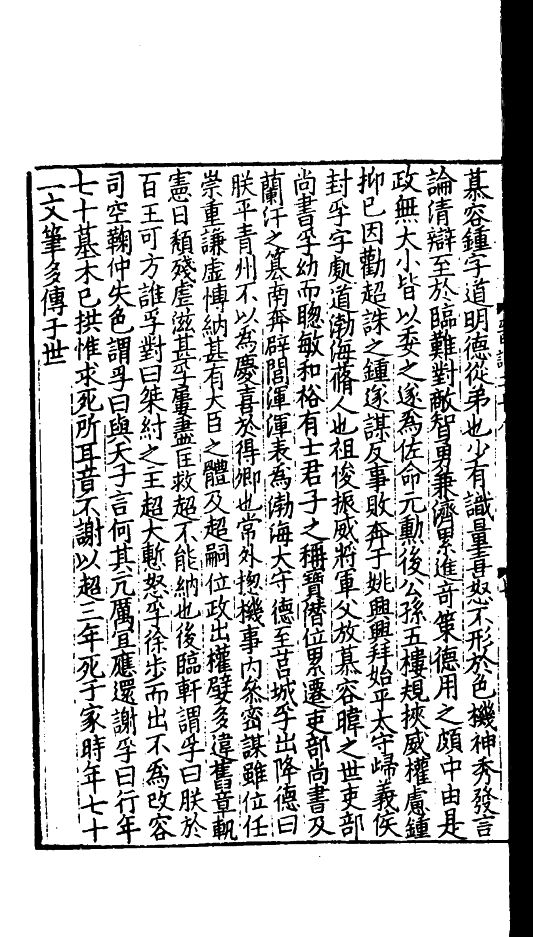 慕容鍾字道明德從弟也少有識量喜怒不形於色機神秀發言
論清辯至於臨難對敵智勇兼濟累進竒策德用之頗中由是
政無大小皆以委之遂為佐命元勳後公孫五樓規挾威權慮鍾
抑已因勸超誅之鍾遂謀反事敗奔于姚興興拜始平太守歸義侯
封孚字處道渤海蓨人也祖悛振威將軍父放慕容暐之世吏部
尚書孚幼而聰敏和裕有士君子之稱寶僭位累遷吏部尚書及
蘭汗之篡南奔辟閭渾渾表為渤海太守德至莒城孚出降德曰
朕平青州不以為慶喜於得卿也常外揔機事內叅密謀雖位任
崇重謙虛慱納甚有大臣之體及超嗣位政出權嬖多違舊章軌
憲日頹殘虐滋甚孚屢盡匡救超不能納也後臨軒謂孚曰朕於
百王可方誰孚對曰桀紂之主超大慙怒孚徐步而出不為改容
司空鞠仲失色謂孚曰與天子言何其亢厲宜應還謝孚曰行年
七十墓木已拱惟求死所耳昔不謝以超三年死于家時年七十
一文筆多傳于世